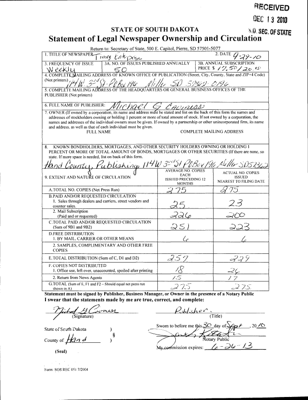 RECEIVED
DEC 13 2010
S.D. SEC. OF STATE
STATE OF SOUTH DAKOTA
Statement of Legal Newspaper Ownership and Circulation
Return to: Secretary of State, 500 E. Capitol, Pierre, SD 57501-5077
1. TITLE OF NEWSPAPER
2. DATE
9-29-10
3. FREQUENCY OF ISSUE
Weekly
3A. NO. OF ISSUES PUBLISHED ANNUALLY
50
3B. ANNUAL SUBSCRIPTION
PRICE $
4. COMPLETE MAILING ADDRESS OF KNOWN OFFICE OF PUBLICATION (Street, City, County, State and ZIP+4 Code)
(Not printers)
5. COMPLETE MAILING ADDRESS OF THE HEADQUARTERS OF GENERAL BUSINESS OFFICES OF THE
PUBLISHER (Not printers)
6. FULL NAME OF PUBLISHER:
Michael G
7. OWNER (If owned by a corporation, its name and address must be stated and list on the back of this form the names and
addresses of stockholders owning or holding 1 percent or more of total amount of stock. If not owned by a corporation, the
names and addresses of the individual owners must be given. If owned by a partnership or other unincorporated firm, its name
and address, as well as that of each individual must be given.
FULL NAME
COMPLETE MAILING ADDRESS
8. KNOWN BONDHOLDERS, MORTGAGES, AND OTHER SECURITY HOLDERS OWNING OR HOLDING 1
PERCENT OR MORE OF TOTAL AMOUNT OF BONDS, MORTGAGES OR OTHER SECURITIES (If there are none, so
state. If more space is needed, list on back of this form.
Hand County Publishing
9. EXTENT AND NATURE OF CIRCULATION
AVERAGE NO. COPIES
EACH
ISSUED PRECEDING 12
MONTHS
ACTUAL NO. COPIES
ISSUED
NEAREST TO FILING DATE
A. TOTAL NO. COPIES (Net Press Run)
275
275
B. PAID AND/OR REQUESTED CIRCULATION
1. Sales through dealers and carriers, street vendors and
counter sales.
25
23
2. Mail Subscription
(Paid and or requested)
226
200
C. TOTAL PAID AND/OR REQUESTED CIRCULATION
(Sum of 9B1 and 9B2)
251
223
D. FREE DISTRIBUTION
1. BY MAIL, CARRIER OR OTHER MEANS
6
6
2. SAMPLES, COMPLIMENTARY AND OTHER FREE
COPIES
E. TOTAL DISTRIBUTION (Sum of C, D1 and D2)
257
229
F. COPIES NOT DISTRIBUTED
1. Office use, left over, unaccounted, spoiled after printing
18
2. Return from News Agents
G. TOTAL
275
275
Statement must be signed by Publisher, Business Manager, or Owner in the presence of a Notary Public
I swear that the statements made by me are true, correct, and complete:
(Signature)
Publisher
(Title)
State of South Dakota )
County of Hand )
(Seal)
Sworn to before me this 30 day of Sept 20 10
Notary Public
My commission expires 6-26-13